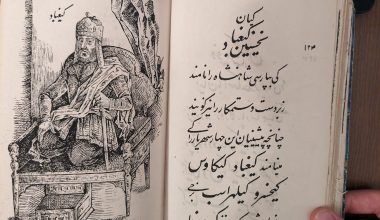 کیقباد
۱۲۴
کیان
نخستین کیقباد
کی بپارسی شاهنشاه را نامند
زبردست و ستمکار را نیز گویند
چنانچه پیشینیان این چهار شهریار را کی
مینامند کیقباد کیکاوس
کیخسرو کیلهراسب